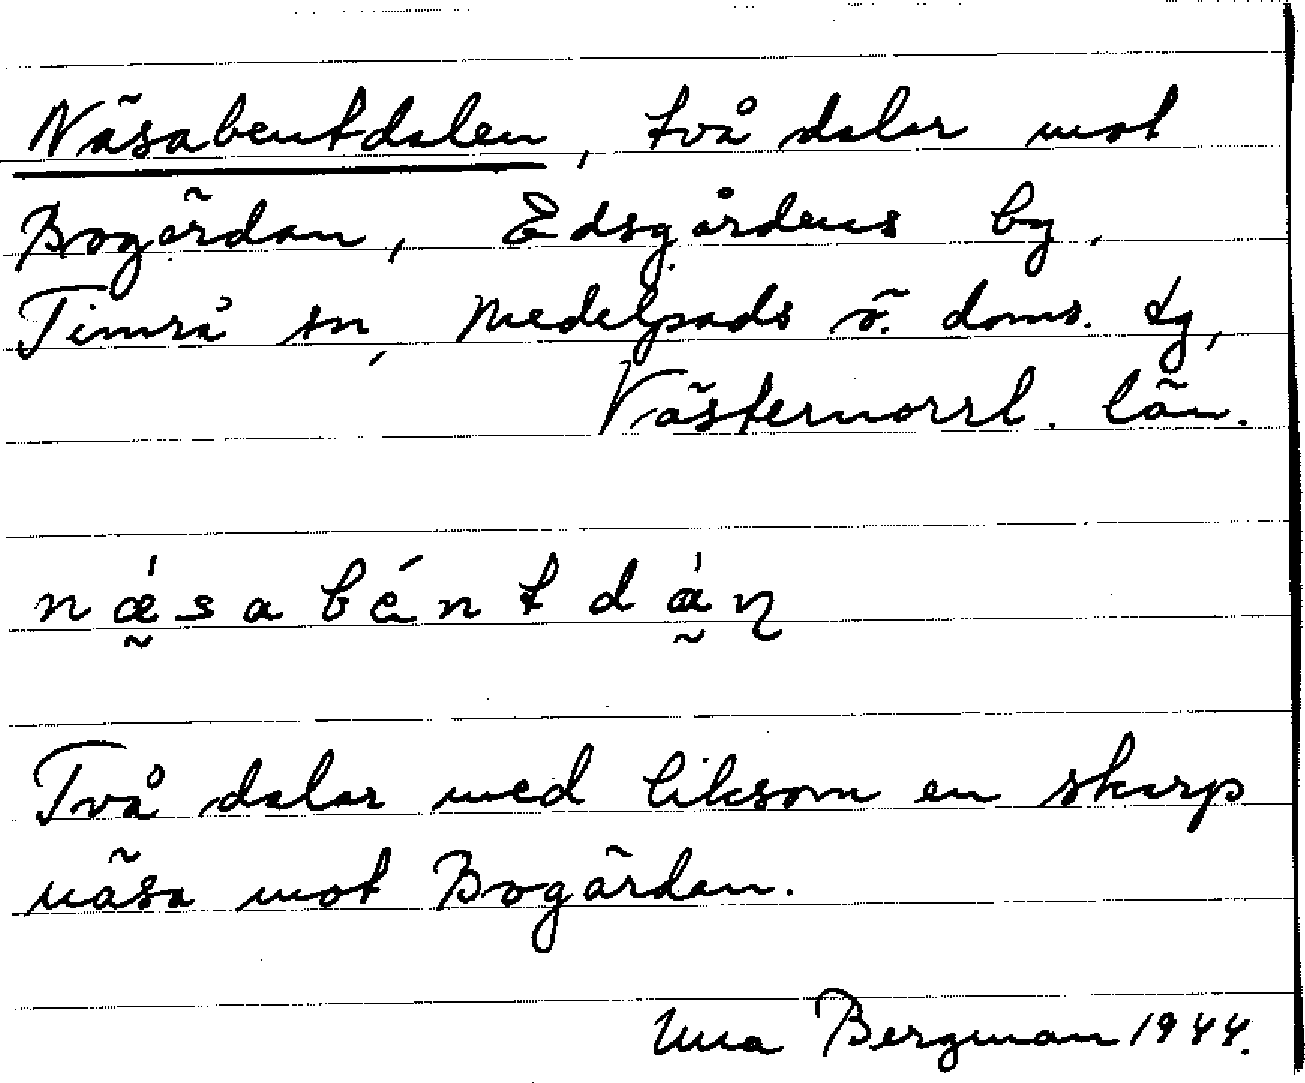 Näsabentdalen, två dalar mot
Bogärdan, Edsgårdens by,
Timrå sn, Medelpads ö. doms. tg,
Västernorrl. län.
nǽ̰sabéntdá̰ɳ
Två dalar med liksom en skarp
näsa mot Bogärdan.
Una Bergman 1944.